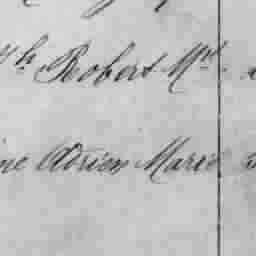 h Robert Mel
ne Adrien Marie